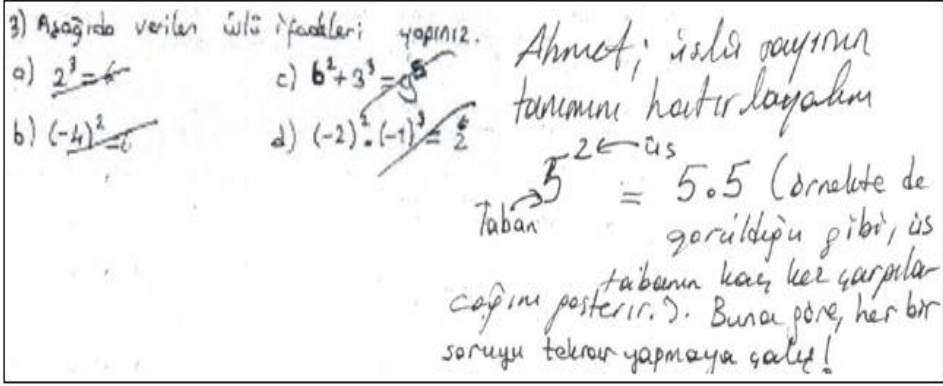 3) Aşağıda verilen üslü ifadeleri yapınız.
a) 2³ = 6
c) 6² + 3³ = 9⁵
b) (-4)²
d) (-2)².(-1)³ = 2⁶
Ahmet; üslü sayının
tanımını hatırlayalım
5² ← üs
Taban
= 5.5 (örnekte de
görüldüğü gibi, üs
tabanın kaç kez çarpıla-
cağını gösterir.). Buna göre, her bir
soruyu tekrar yapmaya çalış!